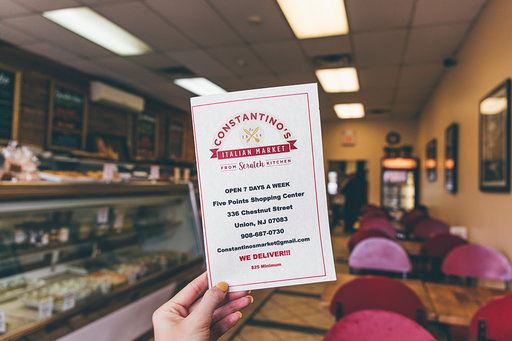 CONSTANTINO'S
ITALIAN MARKET
FROM Scratch KITCHEN
OPEN 7 DAYS A WEEK
Five Points Shopping Center
336 Chestnut Street
Union, NJ 07083
908-687-0730
Constantinosmarket@gmail.com
WE DELIVER!!!
$25 Minimum